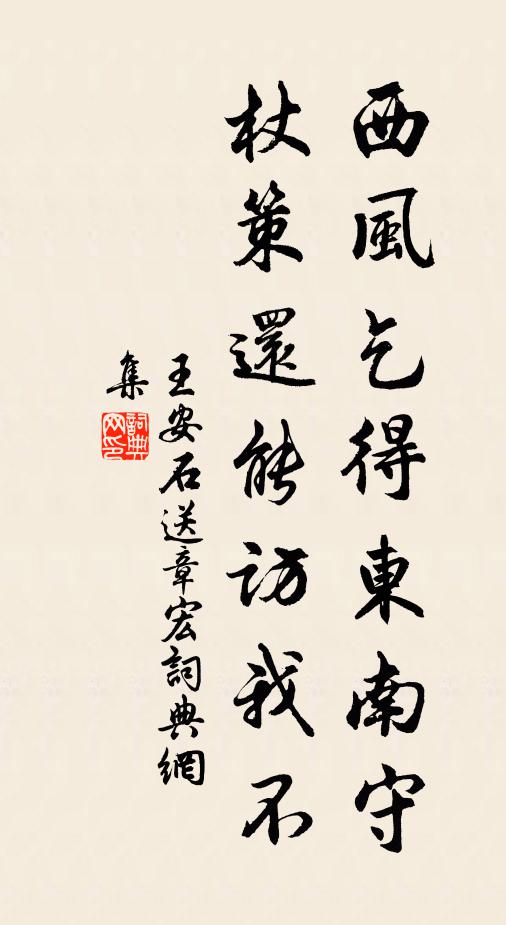 西風乞得東南守
杖策還能訪我不
王安石送章宏詞典網
集
詞典網印